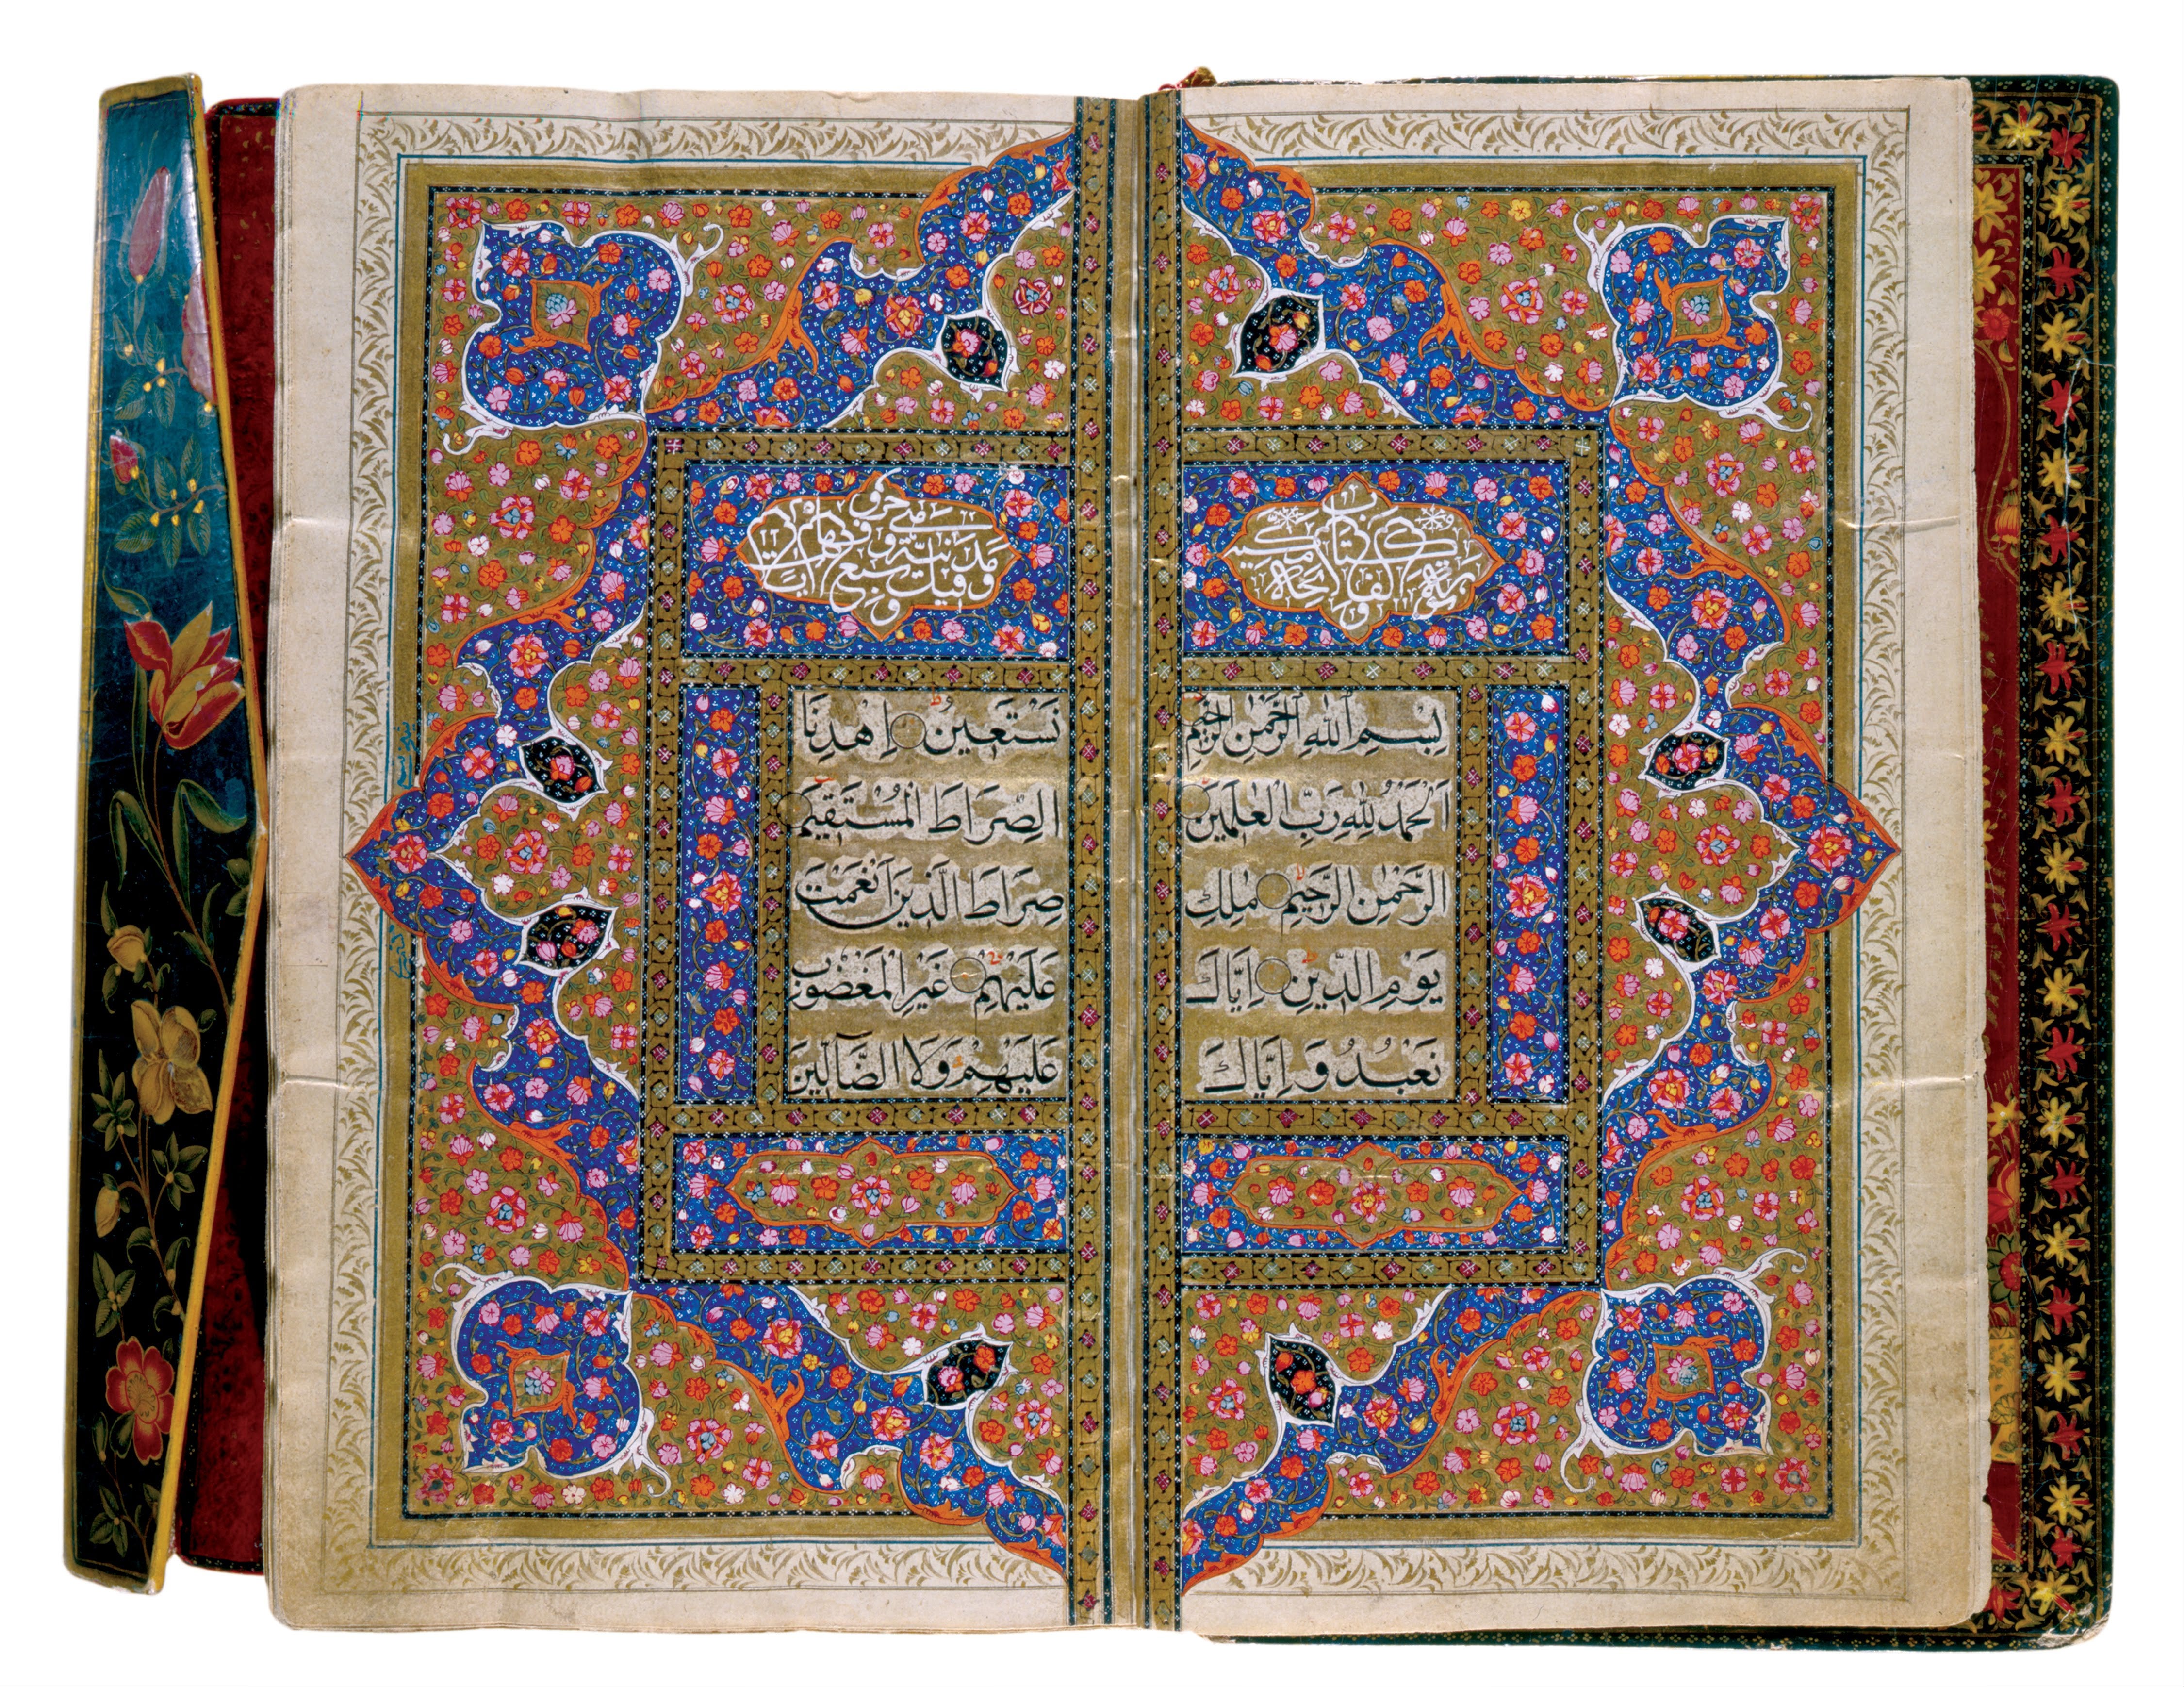 سورة فاتحة الكتاب مكية
بِسْمِ اللهِ الرَّحْمٰنِ الرَّحِيْمِ
اَلْحَمْدُ لِلّٰهِ رَبِّ الْعٰلَمِيْنَ
الرَّحْمٰنِ الرَّحِيْمِ مٰلِكِ
يَوْمِ الدِّيْنِ اِيَّاكَ
نَعْبُدُ وَ اِيَّاكَ
نَسْتَعِيْنُ اِهْدِنَا
الصِّرَاطَ الْمُسْتَقِيْمَ
صِرَاطَ الَّذِيْنَ اَنْعَمْتَ
عَلَيْهِمْ غَيْرِ الْمَغْضُوْبِ
عَلَيْهِمْ وَلَا الضَّآلِّيْنَ